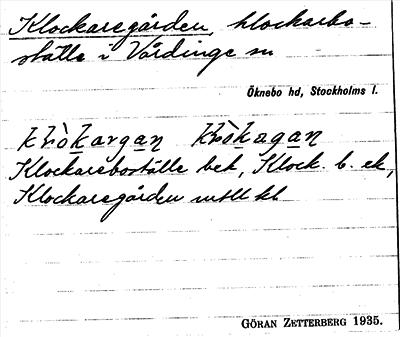 Klockaregården, klockarbo-
ställe i Vårdinge sn
Öknebo hd, Stockholms l.
Klockareboställe bek, Klock. b. ek,
Klockaregården mtll kl
GÖRAN ZETTERBERG 1935.